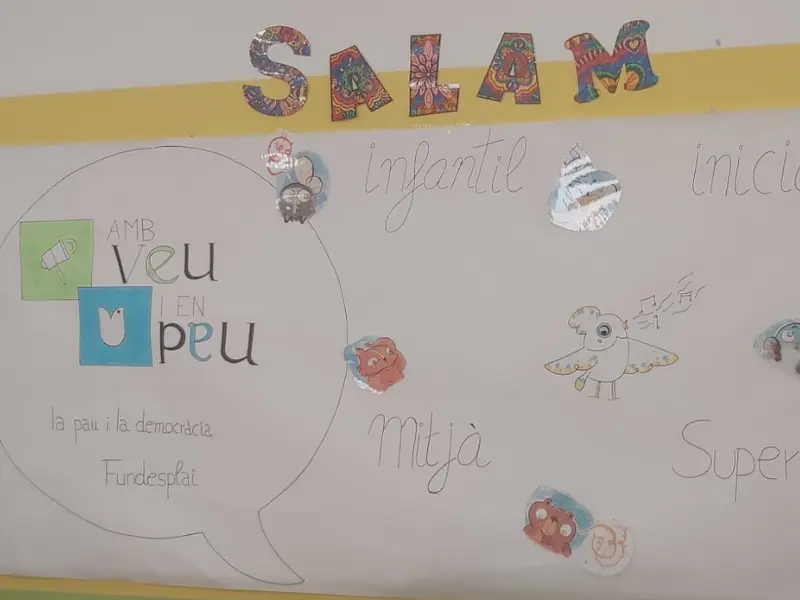 SALAM
infantil
inicia
AMB
veu
I EN
peu
la pau i la democràcia
Fundesplai
Mitjà
Super